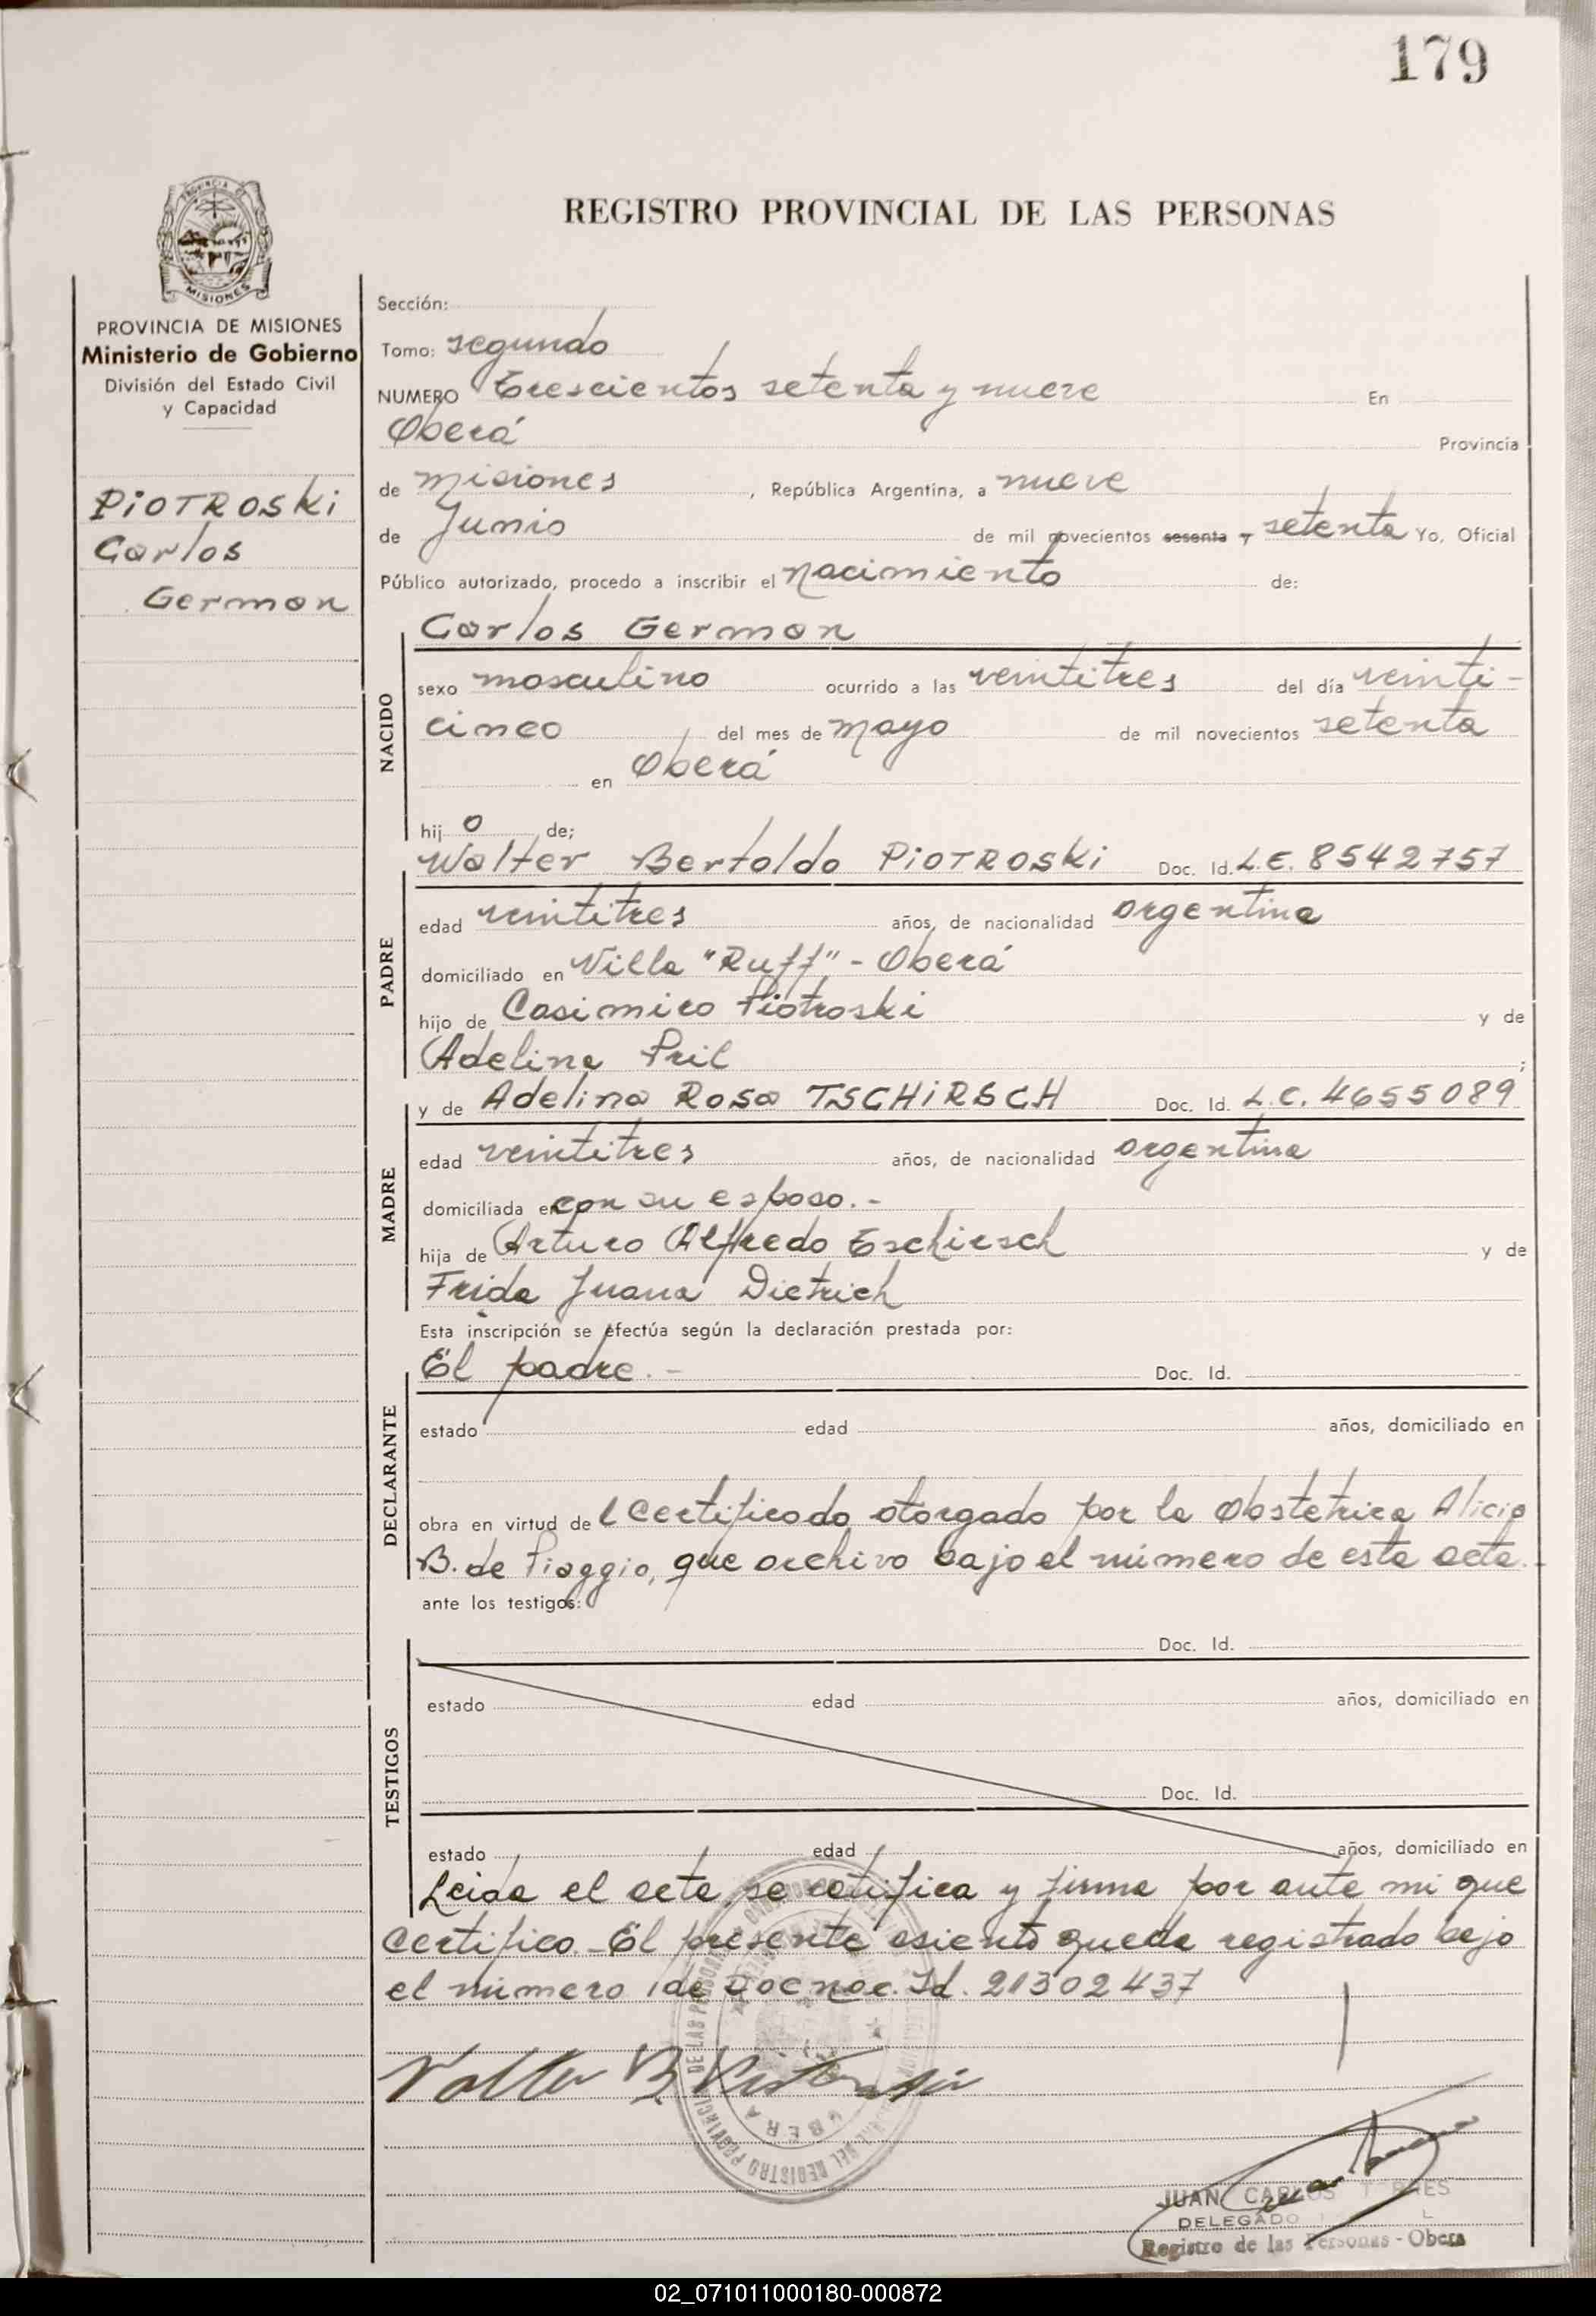 179
REGISTRO PROVINCIAL DE LAS PERSONAS
MISIONES
PROVINCIA DE MISIONES
Ministerio de Gobierno
División del Estado Civil
y Capacidad
PIOTROSKI
Carlos
German
Sección:
Tomo: segundo
NUMERO Trescientos setenta y nueve En
Oberá Provincia
de Misiones, República Argentina, a nueve
de Junio de mil novecientos sesenta y setenta Yo, Oficial
Público autorizado, procedo a inscribir el nacimiento de:
Carlos German
NACIDO
sexo masculino ocurrido a las veintitres del día veinti-
cinco del mes de Mayo de mil novecientos setenta
en Oberá
hij o de;
Walter Bertoldo PIOTROSKI Doc. Id. L.E. 8542757
PADRE
edad veintitres años, de nacionalidad argentina
domiciliado en Villa "Ruff" - Oberá
hijo de Casimiro Piotroski y de
Adelina Pril ;
y de Adelina Rosa TSCHIRSCH Doc. Id. L.C. 4655089
MADRE
edad veintitres años, de nacionalidad argentina
domiciliada en con su esposo.-
hija de Arturo Alfredo Tschirsch y de
Frida Juana Dietrich
Esta inscripción se efectúa según la declaración prestada por:
El padre.- Doc. Id.
DECLARANTE
estado edad años, domiciliado en
obra en virtud de l Certificado otorgado por la Obstetrica Alicia
B. de Piaggio, que archivo bajo el número de esta acta.-
ante los testigos:
Doc. Id.
TESTIGOS
estado edad años, domiciliado en
Doc. Id.
estado edad años, domiciliado en
Leida el acta, se ratifica y firma por ante mi que
certifico.- El presente asiento queda registrado bajo
el número de Doc. nac. Id. 21302437
Walter B Piotroski
OBERA
JUAN CARLOS
DELEGADO
Registro de las Personas - Obera
02_071011000180-000872